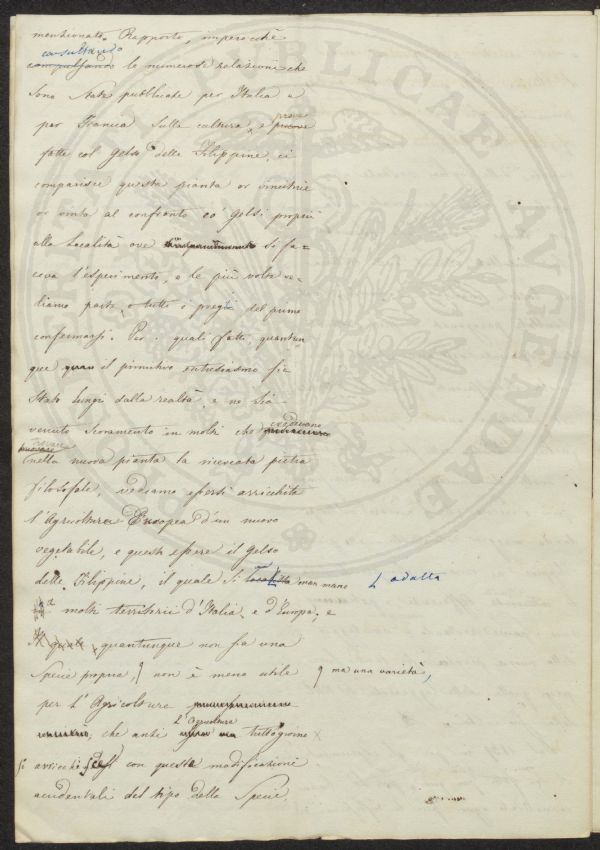 menzionato Rapporto, imperocchè
consultando
compulsando le numerose relazioni che
sono state pubblicate per Italia e
per Francia sulla cultura, e prove
fatte col Gelso delle Filippine, ci
comparisce questa pianta or vincitrice
or vinta al confronto co' Gelsi proprii
alla località ove si fa-
ceva l'esperimento, e le più volte ve-
diamo parte, o tutti i pregi del primo
confermarsi. Per i quali fatti, quantun-
que il primitivo entusiasmo sia
stato lungi dalla realtà, e ne sia
venuto scoramento in molti che credevano
trovare
nella nuova pianta la ricercata pietra
filosofale, vediamo essersi arricchita
l'Agricoltura Europea d'un nuovo
vegetabile, e questi essere il Gelso
delle Filippine, il quale si man mano adatta
a molti territorii d'Italia, e d'Europa, e
quantunque non sia una
specie propria, non è meno utile ma una varietà,
per l'Agricoltura
l'agricoltura
che anzi tuttogiorno
si arricchisce con queste modificazioni
accidentali del tipo della Specie.
PUBLICAE
AUGENDAE